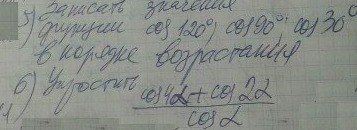 5) Записать значения
функции cos 120°; cos 90°; cos 30°
в порядке возрастания
6) Упростить cos 4α + cos 2α
cos α